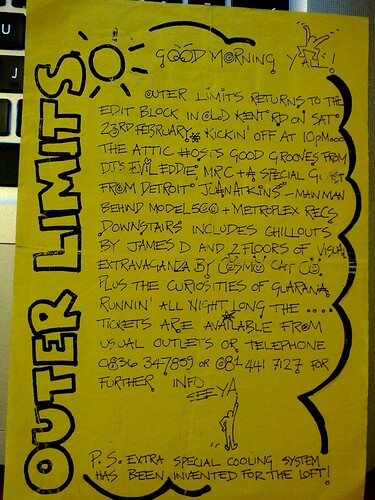 GOOD MORNING Y'ALL!
OUTER LIMITS
OUTER LIMITS RETURNS TO THE
EDIT BLOCK IN OLD KENT RD ON SAT
23RD FEBRUARY * KICKIN' OFF AT 10PM...
THE ATTIC HOSTS GOOD GROOVES FROM
DJ'S EVIL EDDIE, MRC + A SPECIAL GUEST
FROM DETROIT JUAN ATKINS - MAIN MAN
BEHIND MODEL 500 + METROPLEX RECS
DOWNSTAIRS INCLUDES CHILLOUTS
BY JAMES D AND 2 FLOORS OF VISUAL
EXTRAVAGANZA BY COSMO CAT CO
PLUS THE CURIOSITIES OF GUARANA
RUNNIN' ALL NIGHT LONG THE ....
TICKETS ARE AVAILABLE FROM
USUAL OUTLETS OR TELEPHONE
0836 347859 OR 081 441 7127 FOR
FURTHER INFO
SEE YA
P.S. EXTRA SPECIAL COOLING SYSTEM
HAS BEEN INVENTED FOR THE LOFT!
U
J